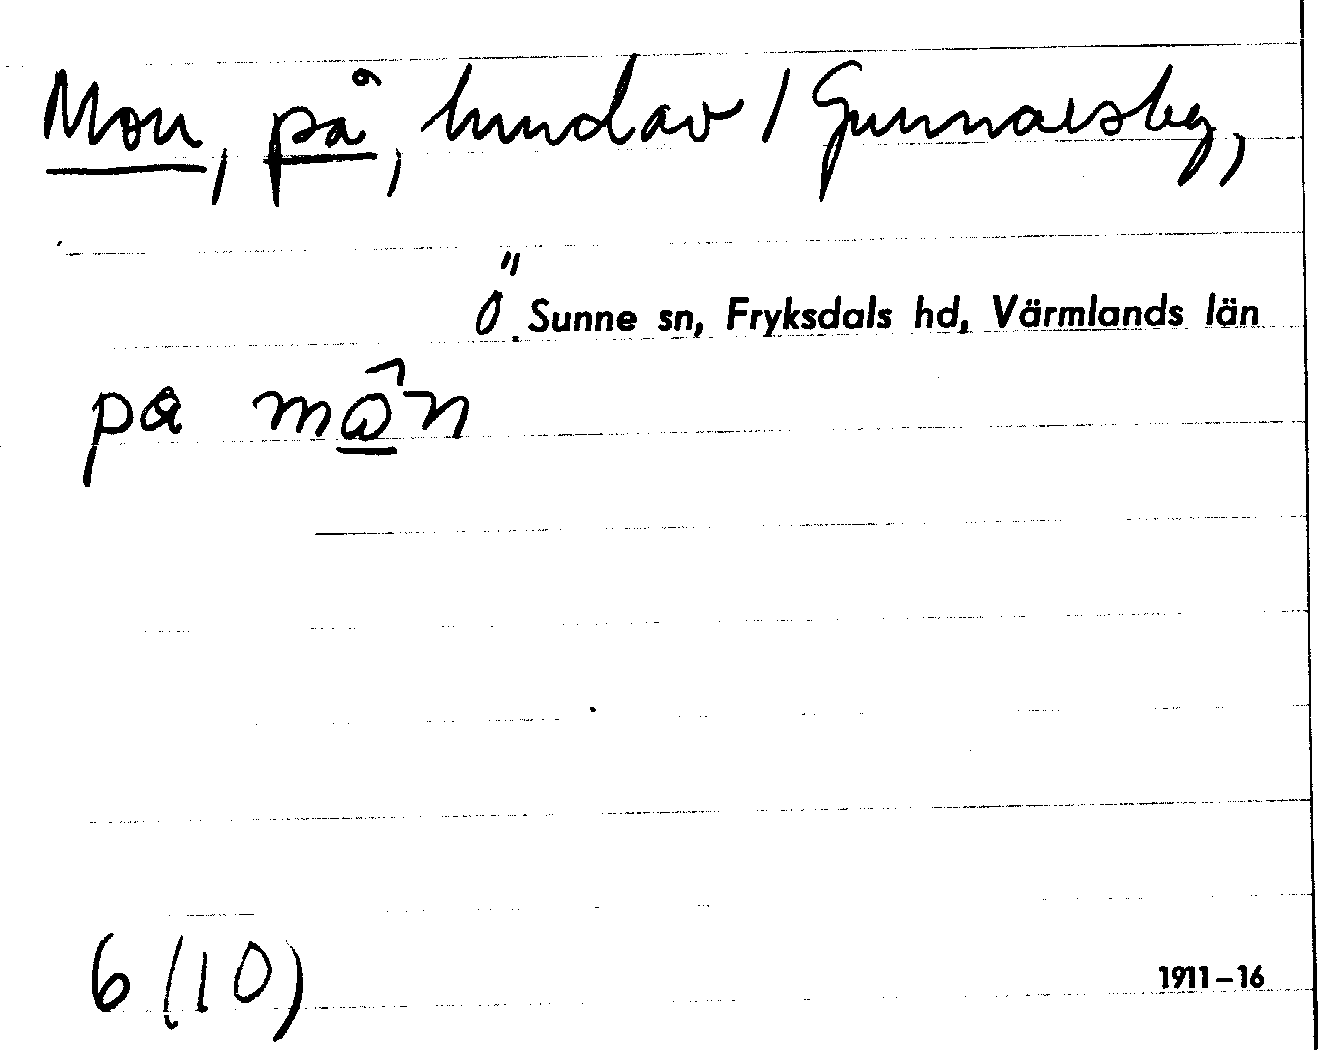 Mon, på, hmdav / Gunnarsby,
Ö. Sunne sn, Fryksdals hd, Värmlands län
pa mô̲n
6 (10)
1911–16